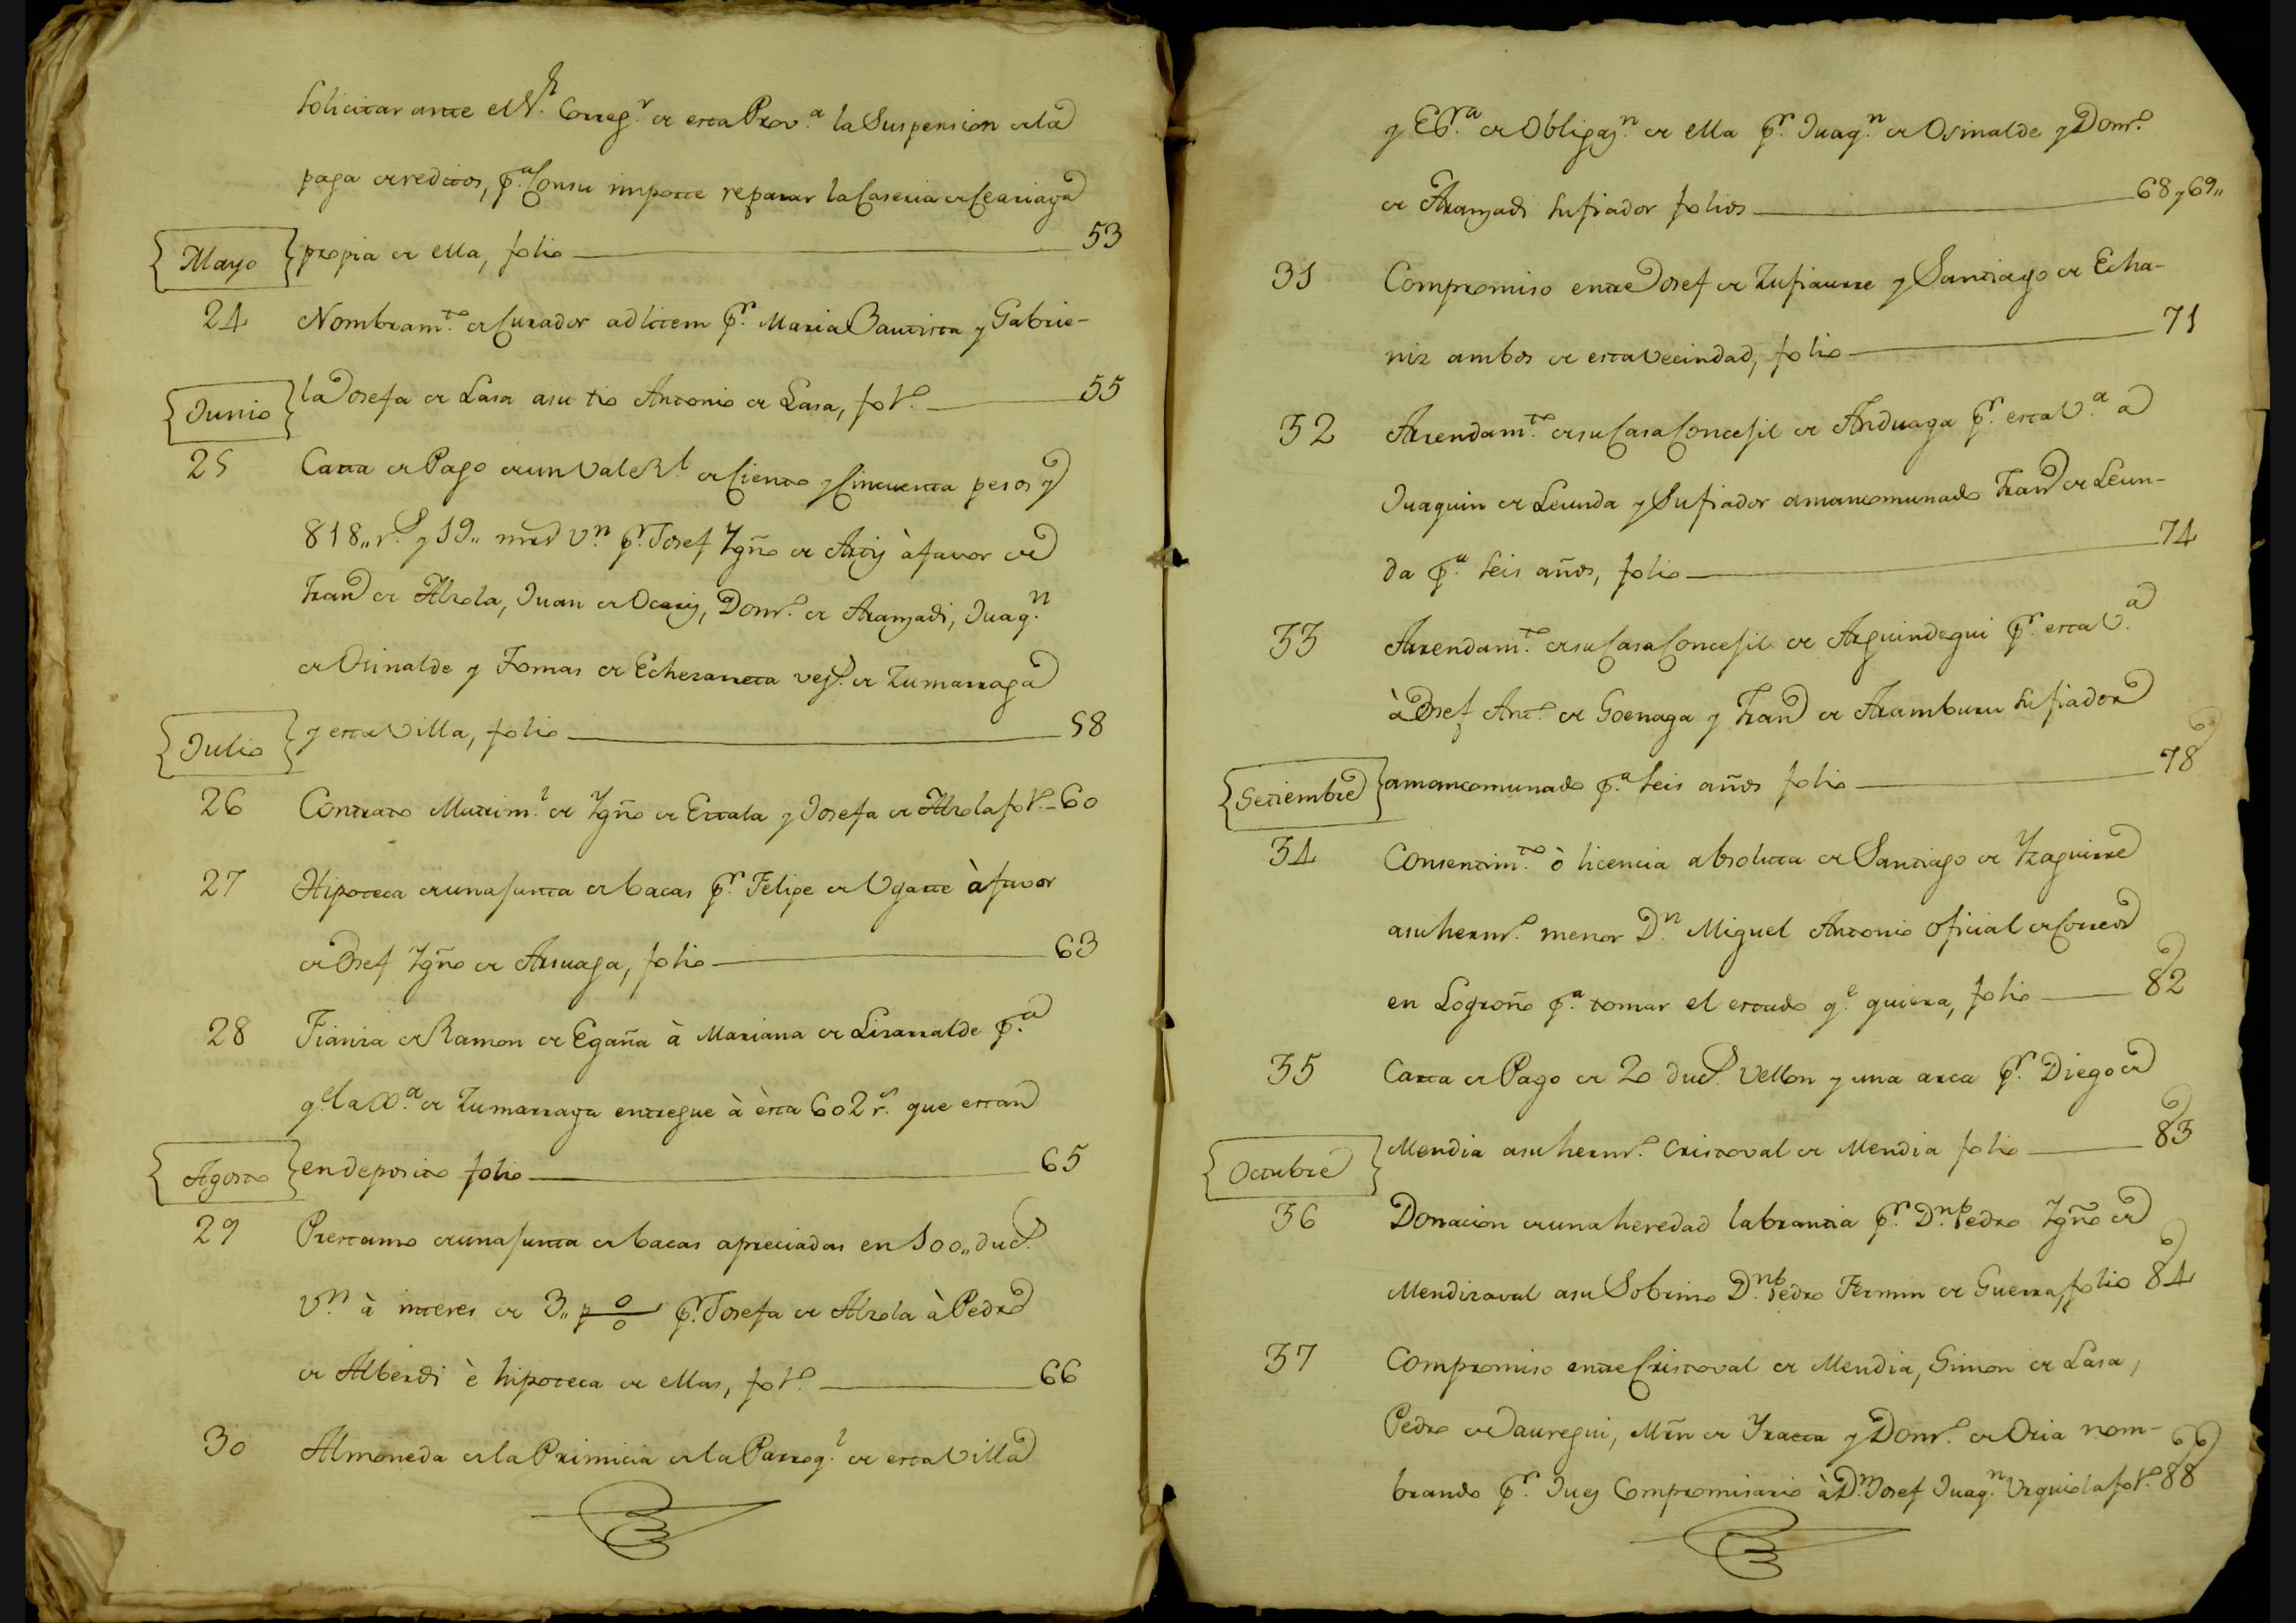 solicitar ante el S.r Correg.r de esta Prov.a la Suspension de la
paga de reditos, p.a Con su importe reparar la Caseria de Leariaga
Mayo
propia de ella, folio 53
24 Nombram.to de Curador ad litem p.r Maria Bautista y Gabrie-
Junio
la Josefa de Lasa a su tio Antonio de Lasa, fol.o 55
25 Carta de Pago de un Vale R.l de Ciento y Cincuenta pesos y
818,, r.s y 19,, mrs v.n p.r Josef Ygño de Arviz à favor de
Fran.co de Alzola, Juan de Ocariz, Dom.o de Aramzadi, Juaq.n
de Osinalde y Tomas de Echezarreta vez.s de Zumarraga
Julio
y esta Villa, folio 58
26 Contrato Matrim.l de Ygño de Errata y Josefa de Alzola fol.o 60
27 Hipoteca de una Junta de bacas p.r Felipe de Ugarte à favor
de Josef Ygño de Arsuaga, folio 63
28 Fianza de Ramon de Egaña à Mariana de Lizarralde p.a
q.e la V.a de Zumarraga entregue à èsta 602 r.s que estan
Agosto
en deposito folio 65
29 Prestamo de una Junta de bacas apreciadas en 100,, duc.s
V.n à interes de 3,, p o/o p.r Josefa de Alzola à Pedro
de Alberdi è hipoteca de ellas, fol.o 66
30 Almoneda de la Primicia de la Parroq.l de esta Villa
y Es.ra de Obligaz.n de ella p.r Juaq.n de Osinalde y Dom.o
de Aramzadi su fiador folios 68 y 69,,
31 Compromiso entre Josef de Zufiaurre y Santiago de Echa-
niz ambos de esta vecindad, folio 71
32 Arrendam.to de su Casa Concejil de Anduaga p.r esta V.a a
Juaquin de Leunda y Su fiador amancomunado Fran.co de Leun-
da p.a seis años, folio 74
33 Arrendam.to de su Casa Concejil de Arguindegui p.r esta V.a
à Josef Ant.o de Goenaga y Fran.co de Aramburu su fiador
Setiembre
amancomunado p.a seis años folio 78
34 Consentim.to ò licencia absoluta de Santiago de Yzaguirre
a su herm.o menor D.n Miguel Antonio oficial de Correos
en Logroño p.a tomar el estado q.e quiera, folio 82
35 Carta de Pago de 20 duc.s Vellon y una arca p.r Diego de
Mendia a su herm.o Cristoval de Mendia folio 83
Octubre
36 Donacion de una heredad labrantia p.r D.n Pedro Ygño de
Mendizaval a su Sobrino D.n Pedro Fermin de Guerra, folio 84
37 Compromiso entre Cristoval de Mendia, Simon de Lasa,
Pedro de Jauregui, Mrn de Yraeta y Dom.o de Oria nom-
brando p.r Juez Compromisario à D.n Josef Juaq.n Urquiola fol.o 88